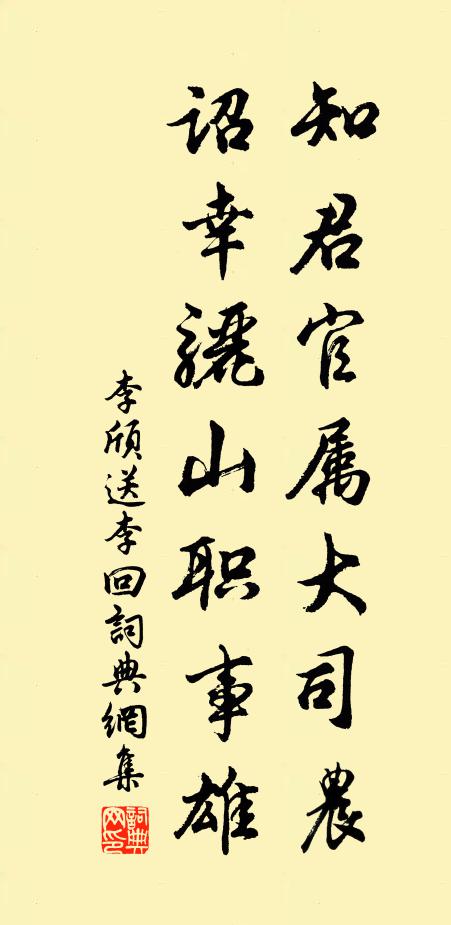 知君官属大司農
诏幸骊山职事雄
李颀送李回詞典網集
詞典网印